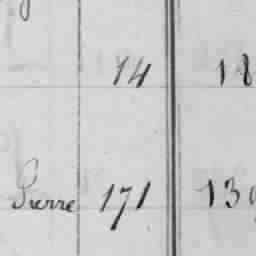 14 18
Pierre 171 139